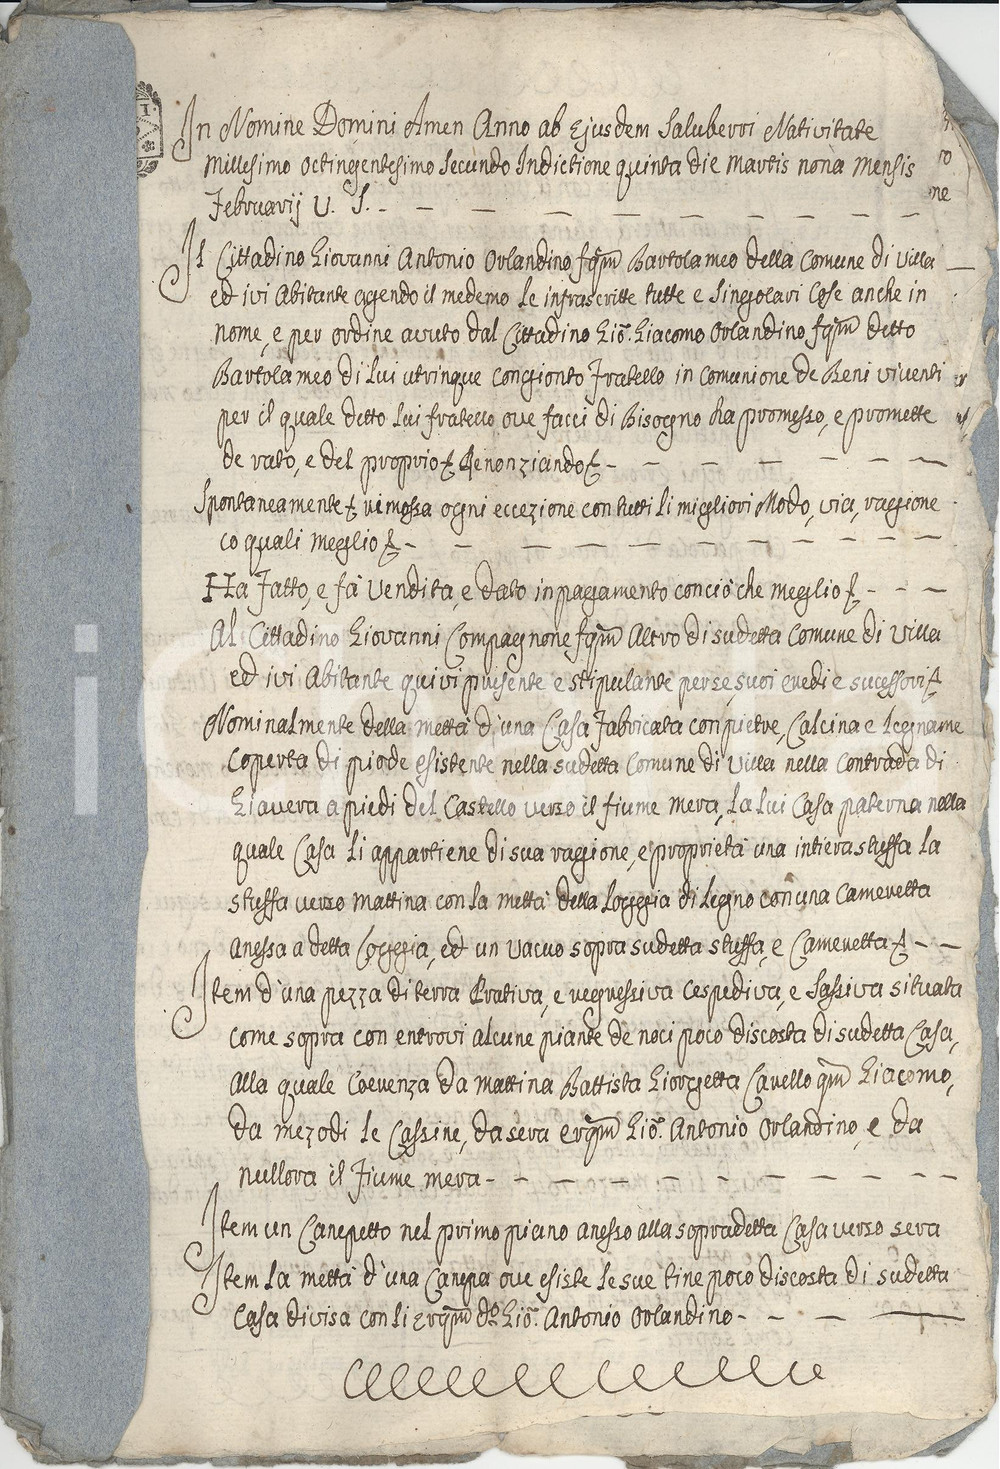 In Nomine Domini Amen Anno ab Ejusdem Saluberri Nativitate
Millesimo octingentesimo secundo Indictione quinta die Martis nona Mensis
Februarij V. S. -
Il Cittadino Giovanni Antonio Orlandino fqm Bartolameo della Comune di Villa
ed ivi Abitante agendo il medemo le infrascritte tutte e singolari Cose anche in
nome, e per ordine avuto dal Cittadino Gio. Giacomo Orlandino fqm detto
Bartolameo di lui utrinque congionto Fratello in comunione de Beni viventi
per il quale detto lui fratello ove facci di Bisogno ha promesso, e promette
de rato, e del proprio & Renonziando & -
Spontaneamente & rimossa ogni eccezione con tutti li migliori Modo, via, raggione
co quali meglio & -
Ha Fatto, e fà Vendita, e dato in pagamento conciò che meglio & -
Al Cittadino Giovanni Compagnone fqm Altro di sudetta Comune di Villa
ed ivi Abitante quivi presente e stipulante per se, suoi eredi e sucessori &
Nominalmente della mettà d'una Casa fabricata con pietre, Calcina e Legname
coperta di piode esistente nella sudetta Comune di Villa nella Contrada di
Giavera a piedi del Castello verso il fiume mera, la lui Casa paterna nella
quale Casa li appartiene di sua raggione, e proprietà una intiera stuffa la
stuffa verso mattina con la mettà della Loggia di Legno con una Cameretta
anessa a detta Loggia, ed un vacuo sopra sudetta stuffa, e Cameretta & -
Item d'una pezza di terra Prativa, e regressiva Cespediva, e Sassiva situata
come sopra con entrovi alcune piante de noci poco discosta di sudetta Casa,
alla quale Coerenza da mattina Battista Giorgetta Cavello qm Giacomo,
da mezodi le Cassine, da sera Gio. Antonio Orlandino, e da
nullora il Fiume mera -
Item un Canepetto nel primo piano anesso alla sopradetta Casa verso sera
Item la mettà d'una Canepa ove esiste le sue tine poco discosta di sudetta
Casa divisa con li Gio. Antonio Orlandino -